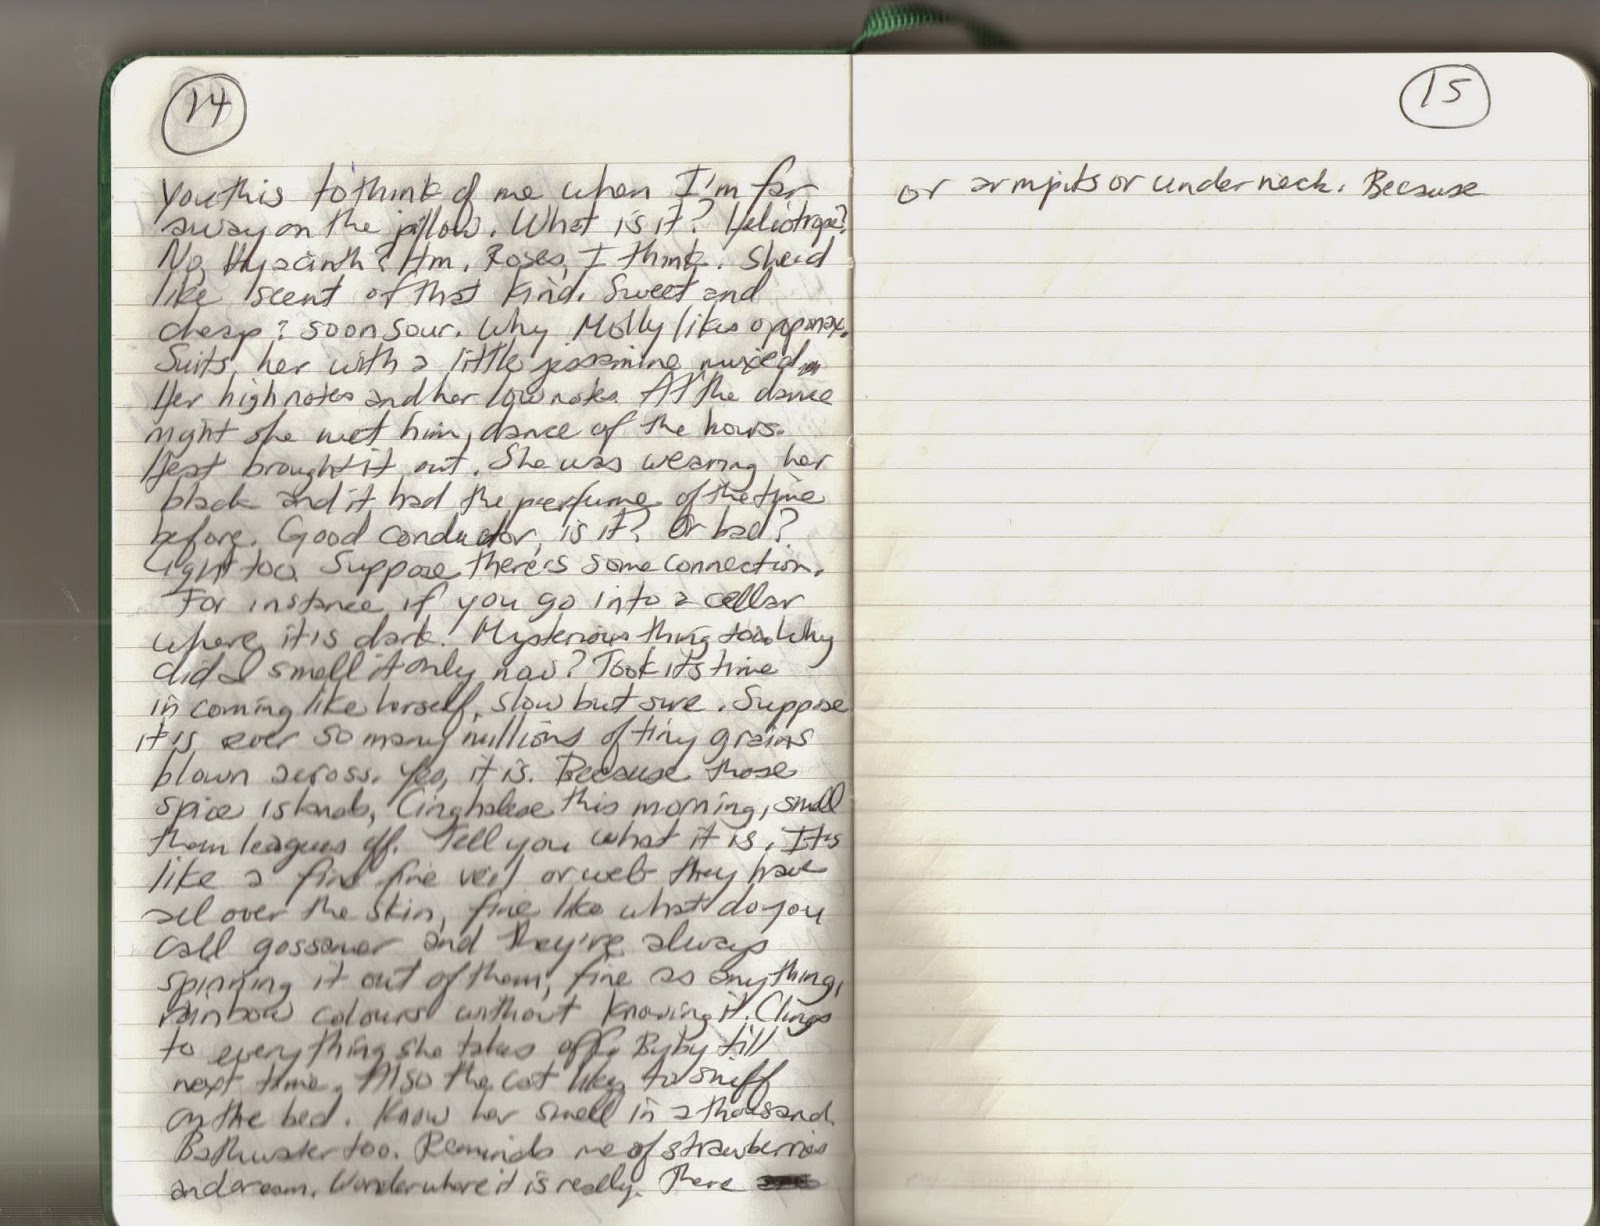 14
you this to think of me when I'm far
away on the pillow. What is it? Heliotrope?
No, Hyacinth? Hm. Roses, I think. She'd
like scent of that kind. Sweet and
cheap: soon sour. Why Molly likes opponax.
Suits her with a little jessamine mixed.
Her high notes and her low notes. At the dance
night she met him, dance of the hours.
Heat brought it out. She was wearing her
black and it had the perfume of the time
before. Good conductor, is it? Or bad?
Light too. Suppose there's some connection.
For instance if you go into a cellar
where it is dark. Mysterious thing too. Why
did I smell it only now? Took its time
in coming like herself, slow but sure. Suppose
it is ever so many millions of tiny grains
blown across. Yes, it is. Because those
spice islands, Cinghalese this morning, smell
them leagues off. Tell you what it is. It's
like a fine fine veil or web they have
all over the skin, fine like what do you
call gossamer and they're always
spinning it out of them, fine as anything,
rainbow colours without knowing it. Clings
to everything she takes off. Byby till
next time. Also the cat likes to sniff
on the bed. Know her smell in a thousand.
Bathwater too. Reminds me of strawberries
and cream. Wonder where it is really. There
15
or armpits or under neck. Because